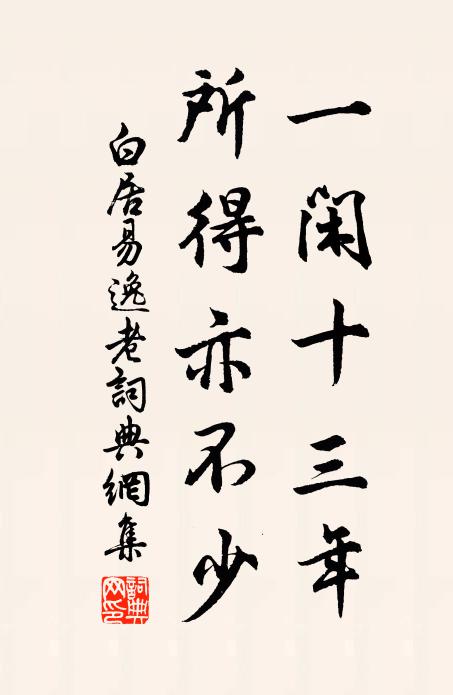 一閑十三年
所得亦不少
白居易逸老詞典網集
詞典網印